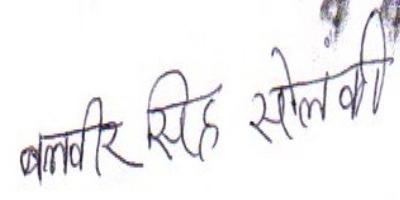 बलवीर सिंह सोलंकी